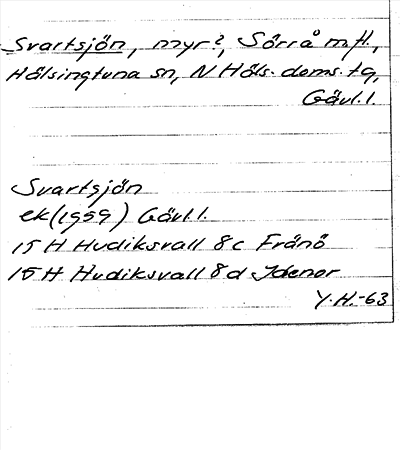 Svartsjön, myr?, Sörrå m.fl.,
Hälsingtuna sn, N Häls. doms. tg,
Gävl. l.
Svartsjön
ek (1959) Gävl. l.
15 H Hudiksvall 8c Fränö
15 H Hudiksvall 8d Idenor
Y.H.-63